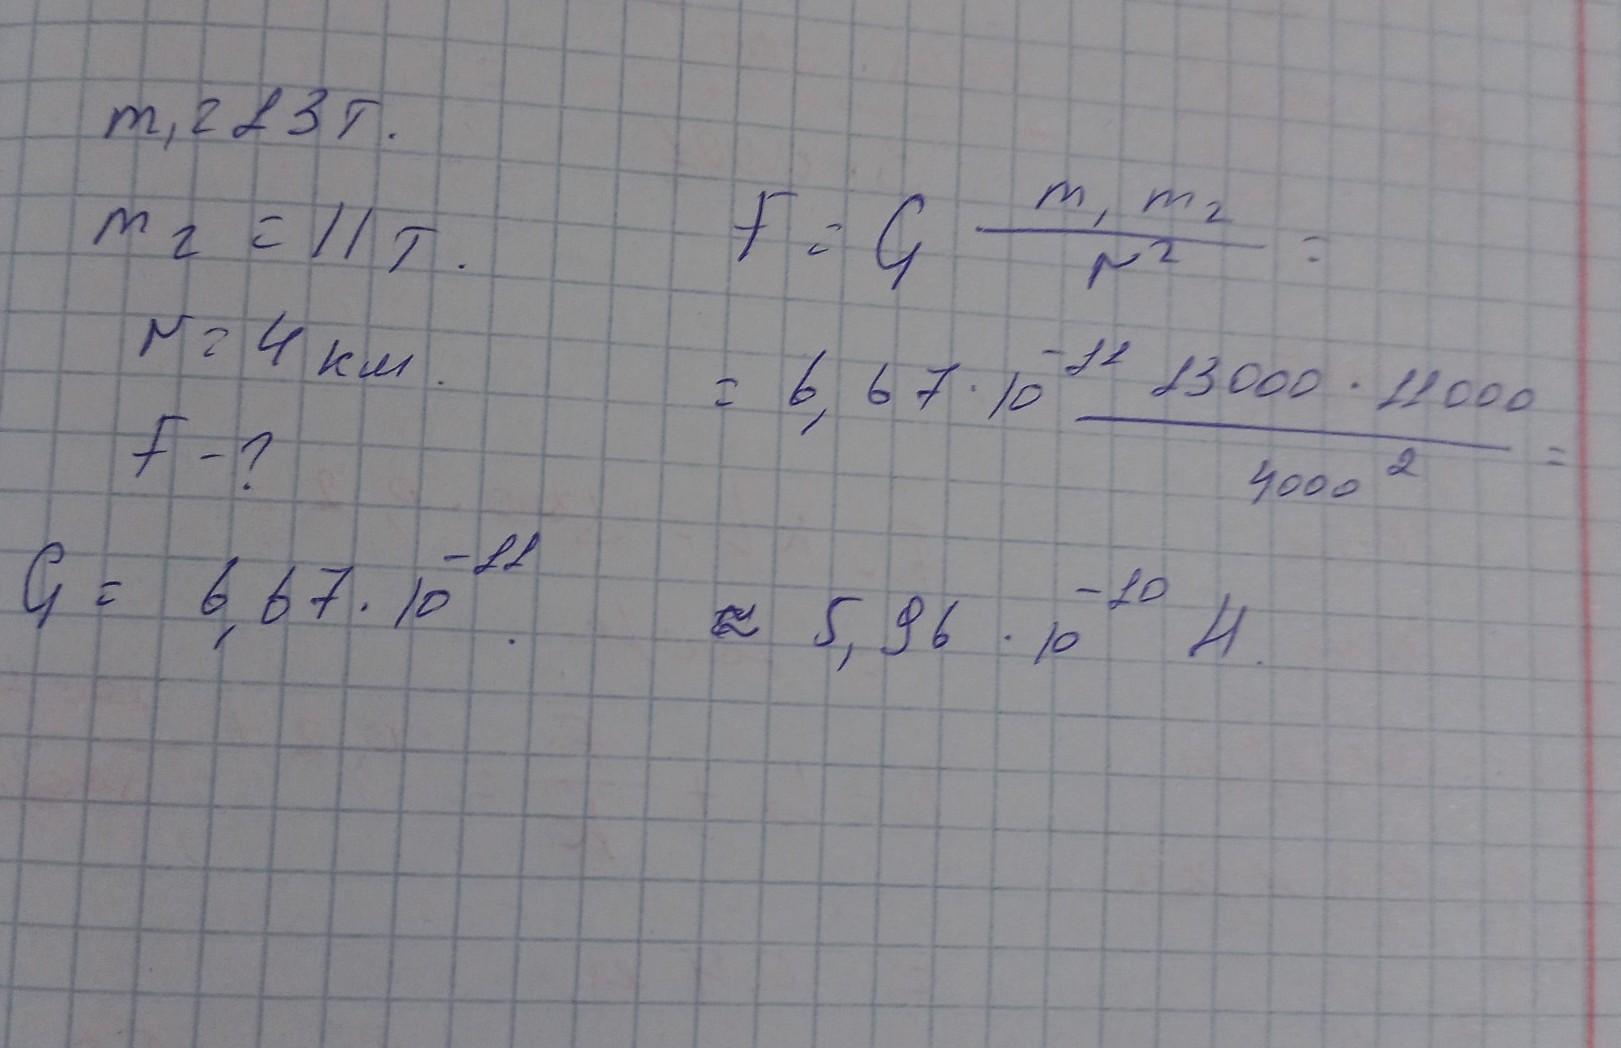 m₁ = 13 т.
m₂ = 11 т.
r = 4 км.
F - ?
G = 6,67 · 10⁻¹¹.
F = G m₁ m₂ / r² =
= 6,67 · 10⁻¹¹ 13000 · 11000 / 4000² =
≈ 5,96 · 10⁻¹⁰ Н.